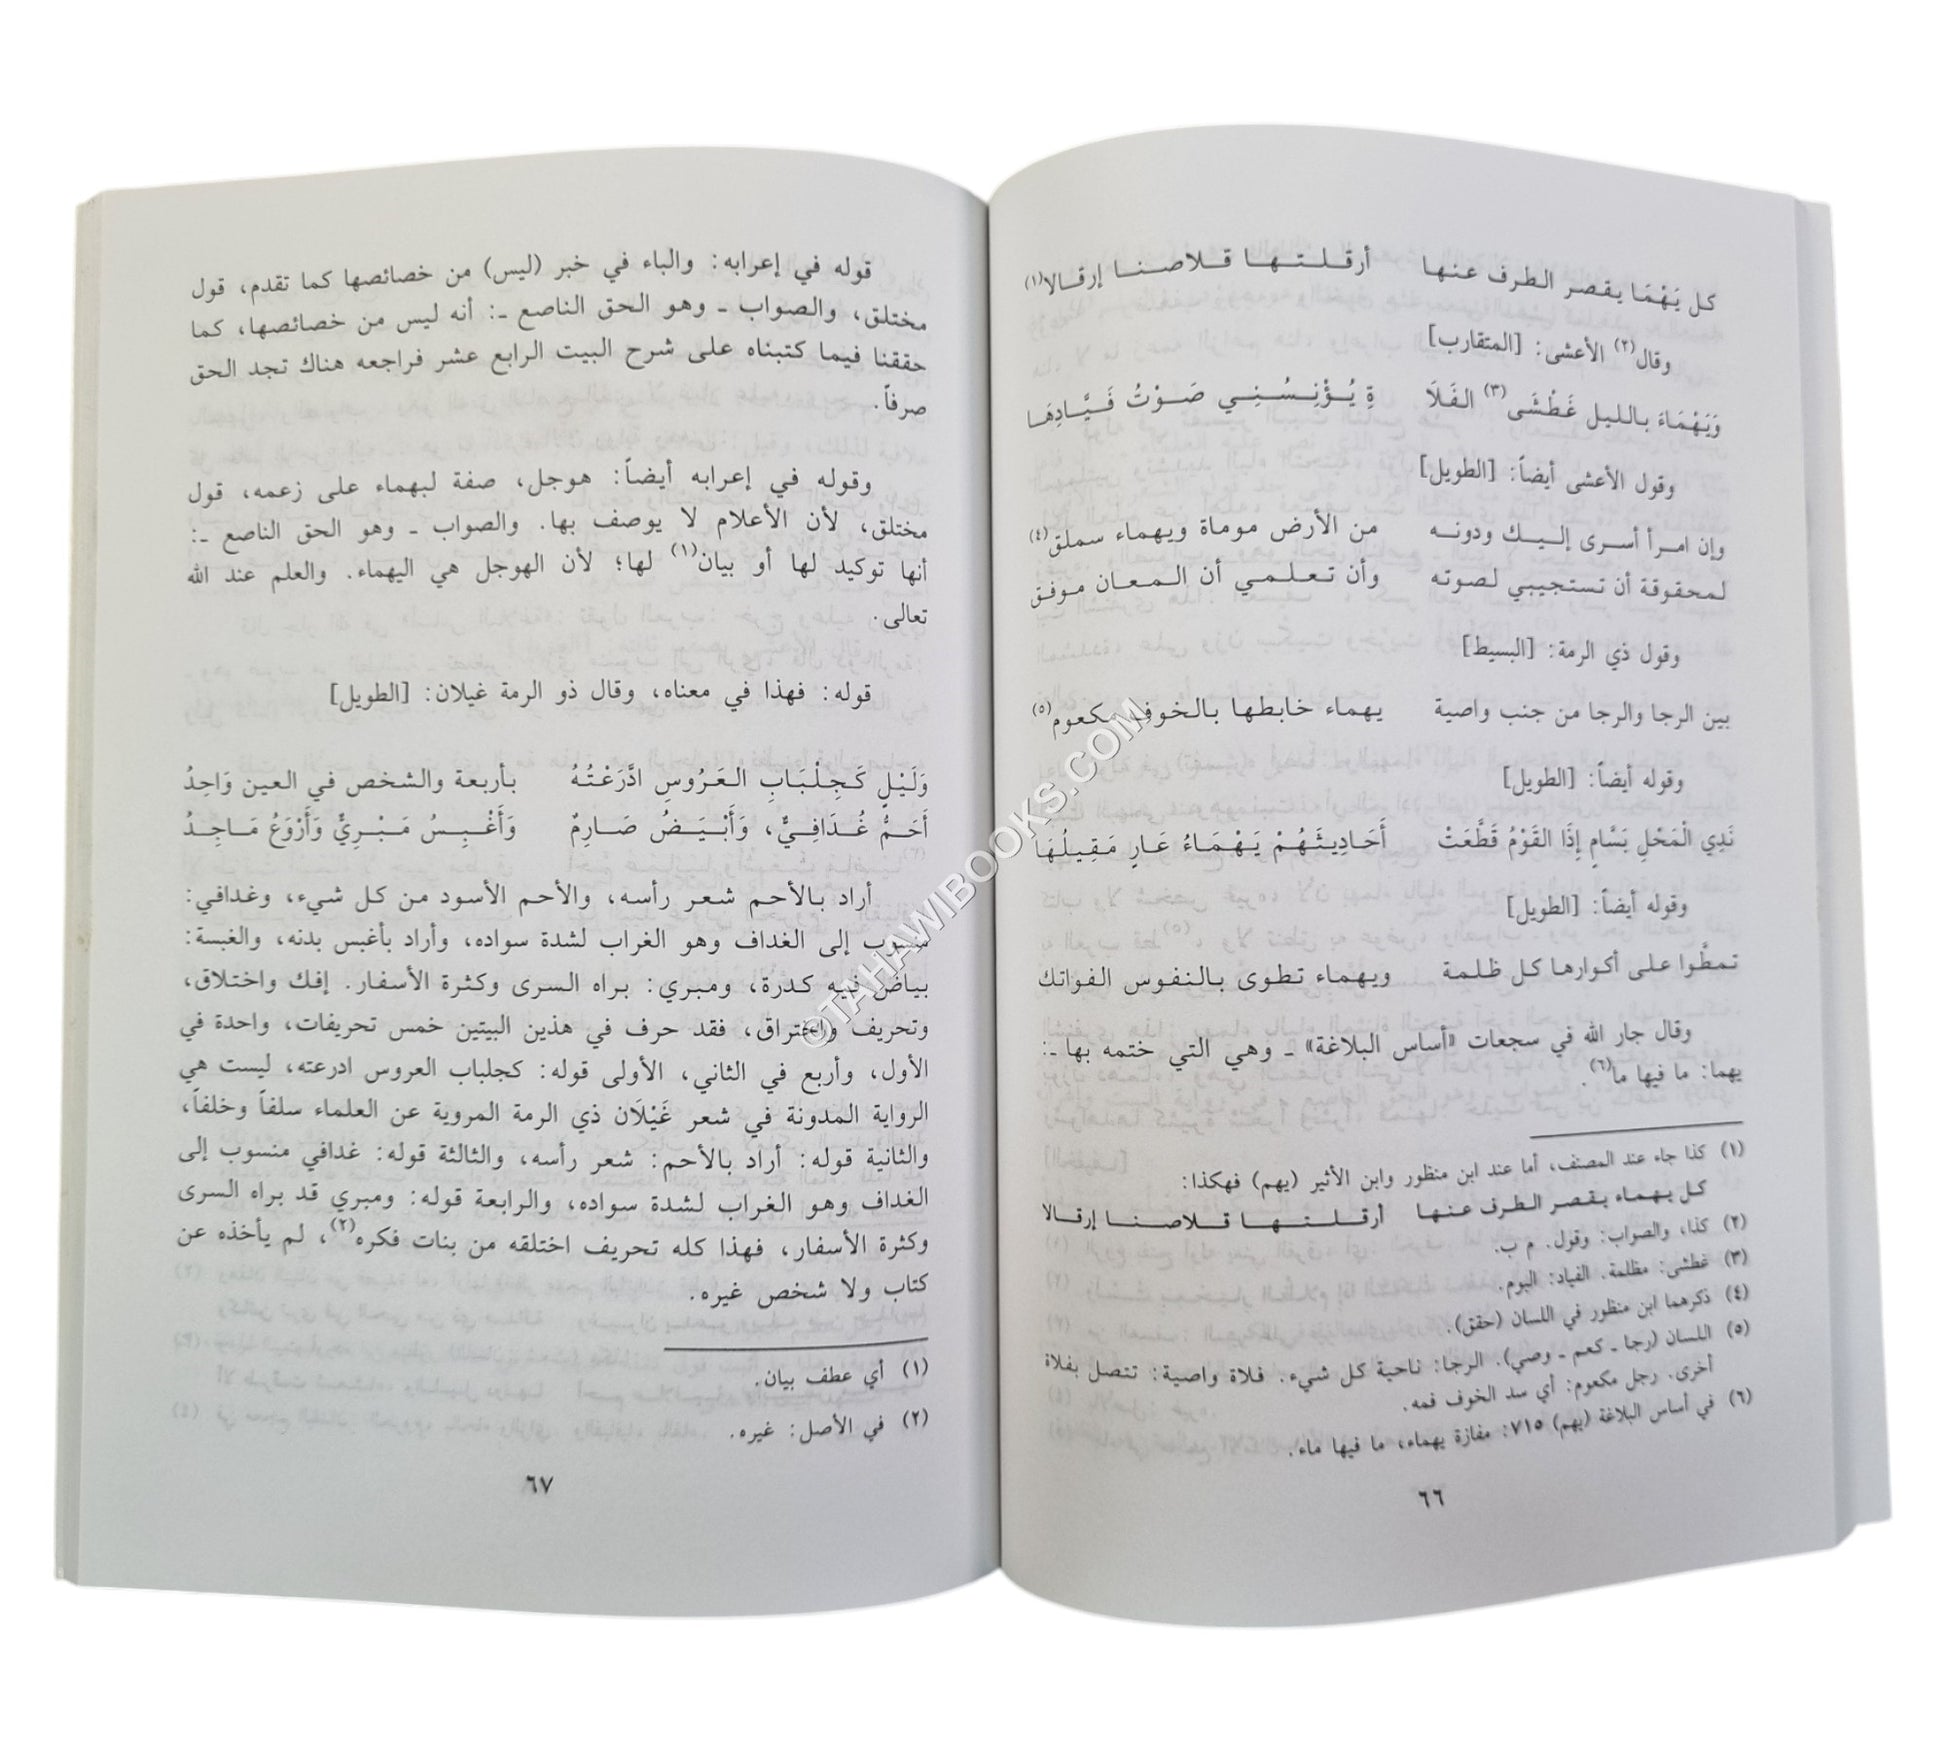 كل يَهْمَا يقصر الطرف عنها أرقلتها قلاصنا إرقالا(١)
وقال(٢) الأعشى: [المتقارب]
وَيَهْمَاءَ بالليل غَطْشَى(٣) الفَلَا ةِ يُؤْنِسُنِي صَوْتُ فَيَّادِهَا
وقول الأعشى أيضاً: [الطويل]
وإن امرأ أسرى إليك ودونه من الأرض موماة ويهماء سملق(٤)
لمحقوقة أن تستجيبي لصوته وأن تعلمي أن المعان موفق
وقول ذي الرمة: [البسيط]
بين الرجا والرجا من جنب واصية يهماء خابطها بالخوف مكعوم(٥)
وقوله أيضاً: [الطويل]
نَدِي الْمَحْلِ بَسَّامٍ إِذَا القَوْمُ قَطَّعَتْ أَحَادِيثَهُمْ يَهْمَاءُ عَارٍ مَقِيلُهَا
وقوله أيضاً: [الطويل]
تمطَّوا على أكوارها كل ظلمة ويهماء تطوى بالنفوس الفواتك
وقال جار الله في سجعات «أساس البلاغة» ـ وهي التي ختمه بها ـ:
يهما: ما فيها ما(٦).
(١) كذا جاء عند المصنف، أما عند ابن منظور وابن الأثير (يهم) فهكذا:
كل يهماء يقصر الطرف عنها أرقلتها قلاصنا إرقالا
(٢) كذا، والصواب: وقول. م ب.
(٣) غطشى: مظلمة. الفياد: البوم.
(٤) ذكرهما ابن منظور في اللسان (حقق).
(٥) اللسان (رجا ـ كعم ـ وصي). الرجا: ناحية كل شيء. فلاة واصية: تتصل بفلاة
أخرى. رجل مكعوم: أي سد الخوف فمه.
(٦) في أساس البلاغة (يهم) ٧١٥: مفازة يهماء، ما فيها ماء.
٦٦
قوله في إعرابه: والباء في خبر (ليس) من خصائصها كما تقدم، قول
مختلق، والصواب ـ وهو الحق الناصع ـ: أنه ليس من خصائصها، كما
حققنا فيما كتبناه على شرح البيت الرابع عشر فراجعه هناك تجد الحق
صرفاً.
وقوله في إعرابه أيضاً: هوجل، صفة لبهماء على زعمه، قول
مختلق، لأن الأعلام لا يوصف بها. والصواب ـ وهو الحق الناصع ـ:
أنها توكيد لها أو بيان(١) لها؛ لأن الهوجل هي اليهماء. والعلم عند الله
تعالى.
قوله: فهذا في معناه، وقال ذو الرمة غيلان: [الطويل]
وَلَيْلٍ كَجِلْبَابِ العَرُوسِ ادَّرَعْتُهُ بأربعة والشخص في العين وَاحِدُ
أَحَمُّ غُدَافِيٌّ، وَأَبْيَضُ صَارِمٌ وَأَغْبِسُ مَبْرِيٌّ وَأَرْوَعُ مَاجِدُ
أراد بالأحم شعر رأسه، والأحم الأسود من كل شيء، وغدافي:
منسوب إلى الغداف وهو الغراب لشدة سواده، وأراد بأغبس بدنه، والغبسة:
بياض فيه كدرة، ومبري: براه السرى وكثرة الأسفار. إفك واختلاق،
وتحريف واختراق، فقد حرف في هذين البيتين خمس تحريفات، واحدة في
الأول، وأربع في الثاني، الأولى قوله: كجلباب العروس ادرعته، ليست هي
الرواية المدونة في شعر غَيْلَان ذي الرمة المروية عن العلماء سلفاً وخلفاً،
والثانية قوله: أراد بالأحم: شعر رأسه، والثالثة قوله: غدافي منسوب إلى
الغداف وهو الغراب لشدة سواده، والرابعة قوله: ومبري قد براه السرى
وكثرة الأسفار، فهذا كله تحريف اختلقه من بنات فكره(٢)، لم يأخذه عن
كتاب ولا شخص غيره.
(١) أي عطف بيان.
(٢) في الأصل: غيره.
٦٧
©TAHAWIBOOKS.COM